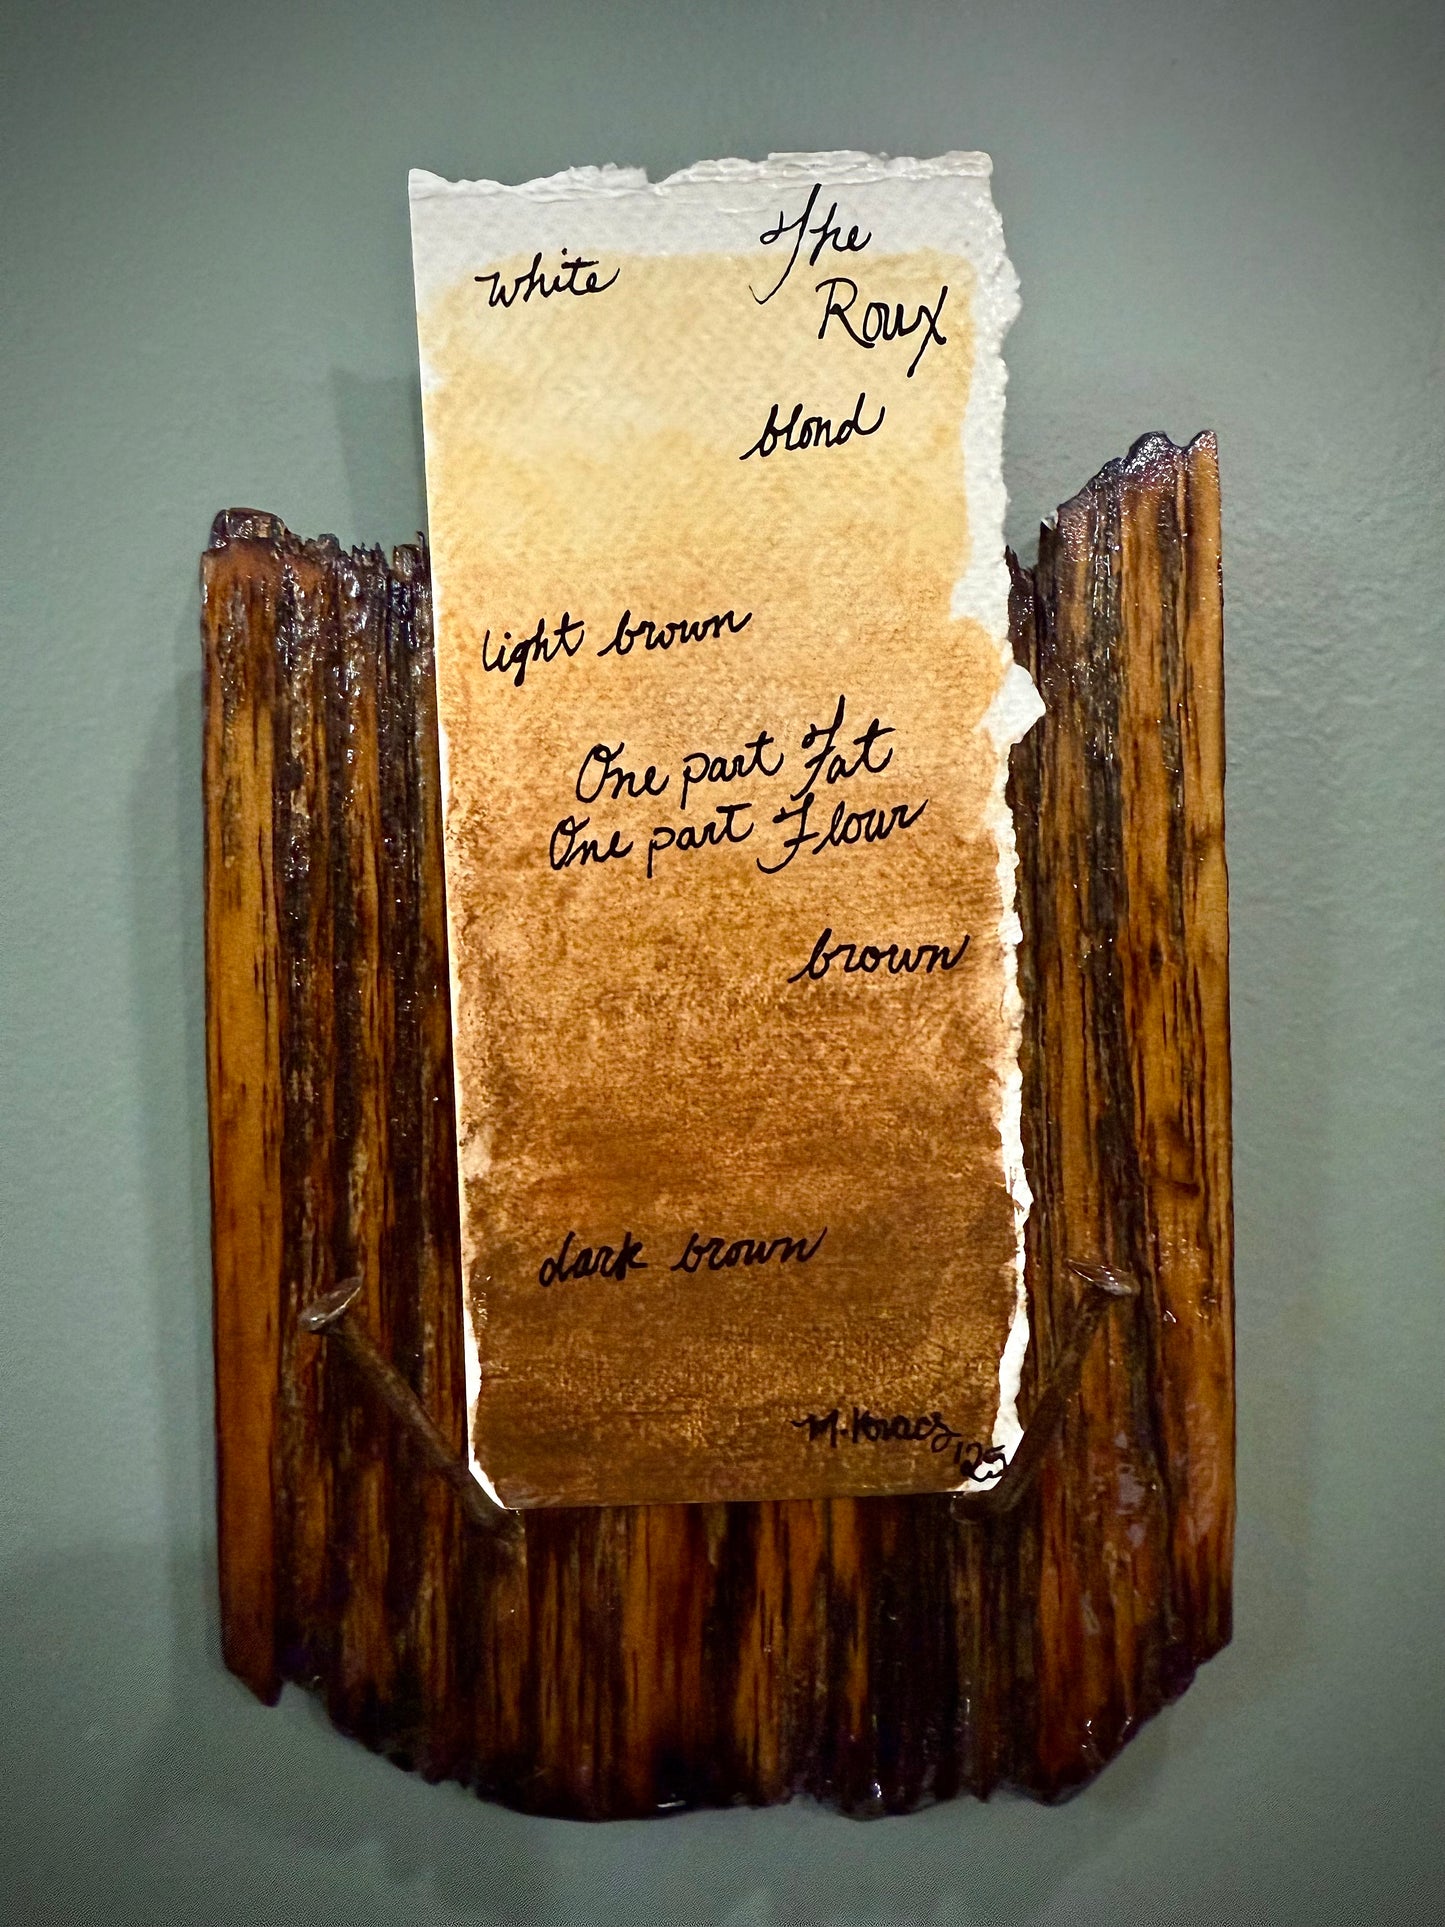 The
white
Roux
blond
light brown
One part Fat
One part Flour
brown
dark brown
M. Kovacs
'25